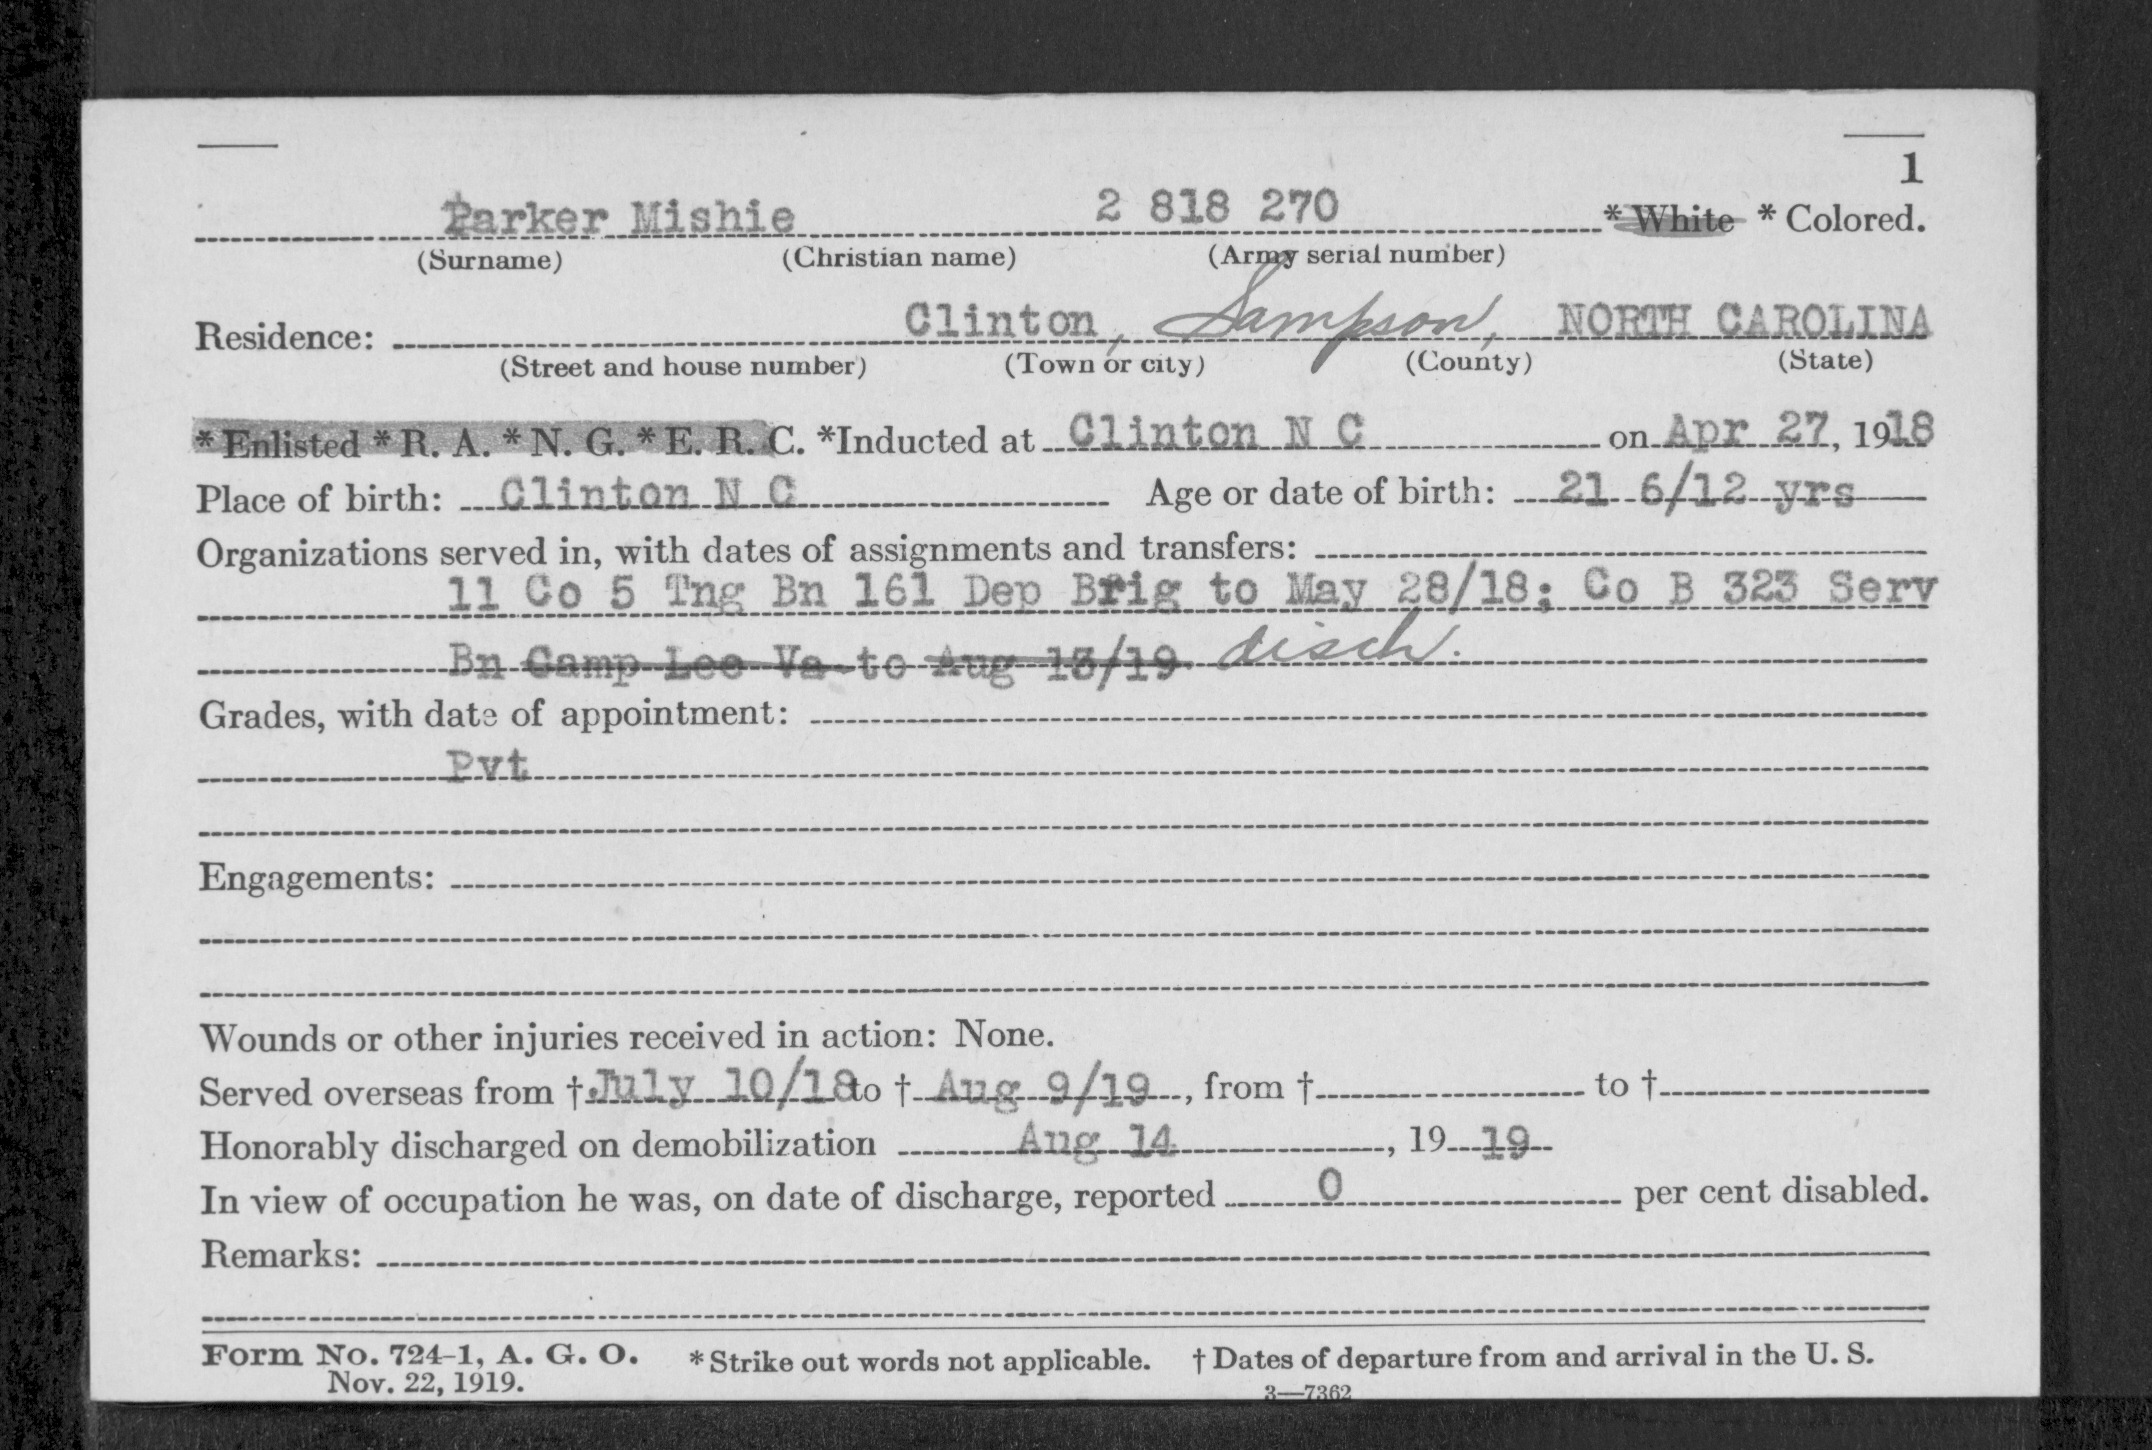 1
Parker Mishie 2 818 270 * White * Colored.
(Surname) (Christian name) (Army serial number)
Residence: Clinton, Sampson, NORTH CAROLINA
(Street and house number) (Town or city) (County) (State)
* Enlisted * R. A. * N. G. * E. R. C. *Inducted at Clinton N C on Apr 27, 1918
Place of birth: Clinton N C Age or date of birth: 21 6/12 yrs
Organizations served in, with dates of assignments and transfers:
11 Co 5 Tng Bn 161 Dep Brig to May 28/18; Co B 323 Serv
Bn Camp Lee Va to Aug 13/19 disch.
Grades, with date of appointment:
Pvt
Engagements:
Wounds or other injuries received in action: None.
Served overseas from † July 10/18 to † Aug 9/19, from † to †
Honorably discharged on demobilization Aug 14, 19 19
In view of occupation he was, on date of discharge, reported 0 per cent disabled.
Remarks:
Form No. 724-1, A. G. O. * Strike out words not applicable. † Dates of departure from and arrival in the U. S.
Nov. 22, 1919.
3—7362